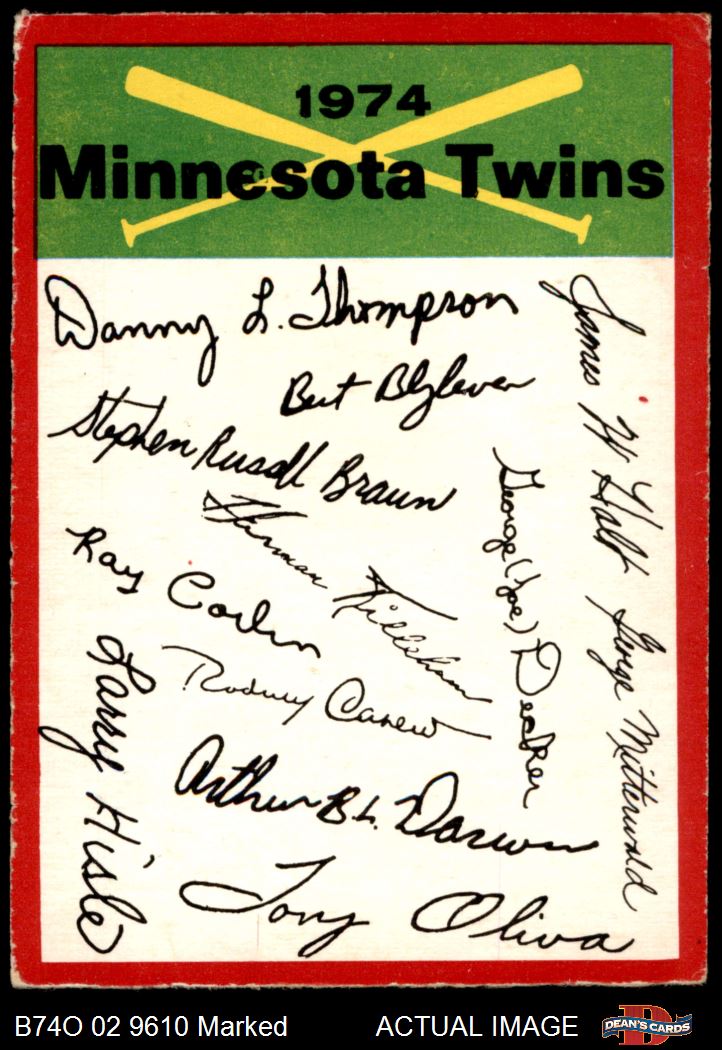 1974
Minnesota Twins
Danny L. Thompson
Bert Blyleven
Stephen Russell Braun
James H Holt
Harmon Killebrew
George (Joe) Decker
Ray Corbin
George Mitterwald
Rodney Carew
Larry Hisle
Arthur B L. Darwin
Tony Oliva
B74O 02 9610 Marked
ACTUAL IMAGE
D
DEAN'S CARDS